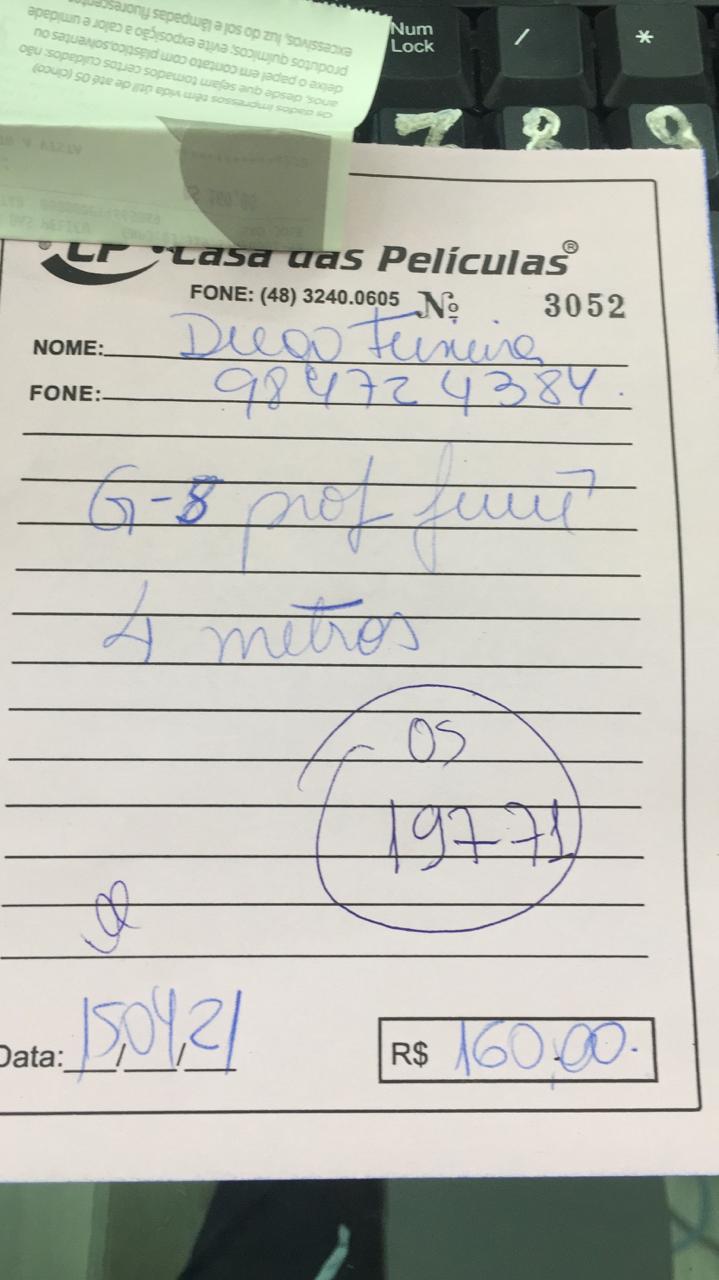 Num
Lock
/
*
7 8 9
Os dados impressos têm vida útil de até 05 (cinco)
anos, desde que sejam tomados certos cuidados: não
deixe o papel em contato com plástico,solventes ou
produtos químicos; evite exposição a calor e umidade
excessivos, luz do sol e lâmpadas fluorescentes
CP Casa das Películas®
FONE: (48) 3240.0605 Nº 3052
NOME: Diego Teixeira
FONE: 984724384.
G-5 prof
4 metros
OS
19771
Data: 15/04/21
R$ 160,00.